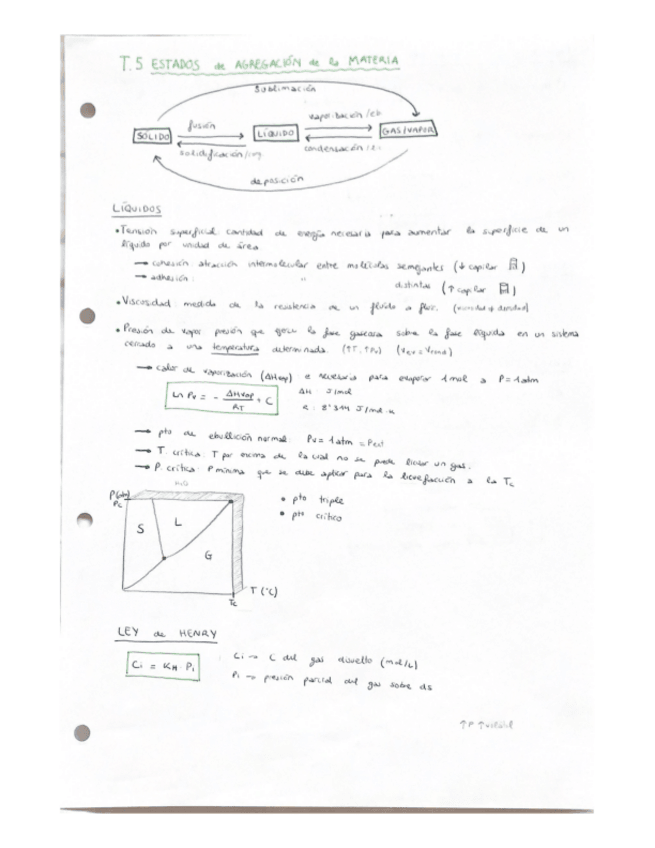 T.5 ESTADOS de AGREGACIÓN de la MATERIA
sublimación
fusión
vaporización/eb
SÓLIDO
LÍQUIDO
GAS/VAPOR
solidificación/
condensación/
deposición
LÍQUIDOS
• Tensión superficial: cantidad de energía necesaria para aumentar la superficie de un
líquido por unidad de área.
→ cohesión: atracción intermolecular entre moléculas semejantes (↓ capilar )
→ adhesión: " distintas (↑ capilar )
• Viscosidad: medida de la resistencia de un fluido a fluir.
• Presión de vapor: presión que ejerce la fase gaseosa sobre la fase líquida en un sistema
cerrado a una temperatura determinada. (↑T, ↑Pv) (Vev = Vcond)
→ calor de vaporización (ΔHvap) e necesaria para evaporar 1 mol a P = 1 atm
Ln Pv = - ΔHvap/RT + C
ΔH: J/mol
R: 8'314 J/mol·K
→ pto de ebullición normal: Pv = 1 atm = Pext
→ T. crítica: T por encima de la cual no se puede licuar un gas.
→ P. crítica: P mínima que se debe aplicar para la licuefacción a la Tc
P(atm)
Pc
S
L
G
Tc
T (°C)
• pto triple
• pto crítico
LEY de HENRY
Ci = KH · Pi
Ci → C del gas disuelto (mol/L)
Pi → presión parcial del gas sobre ds